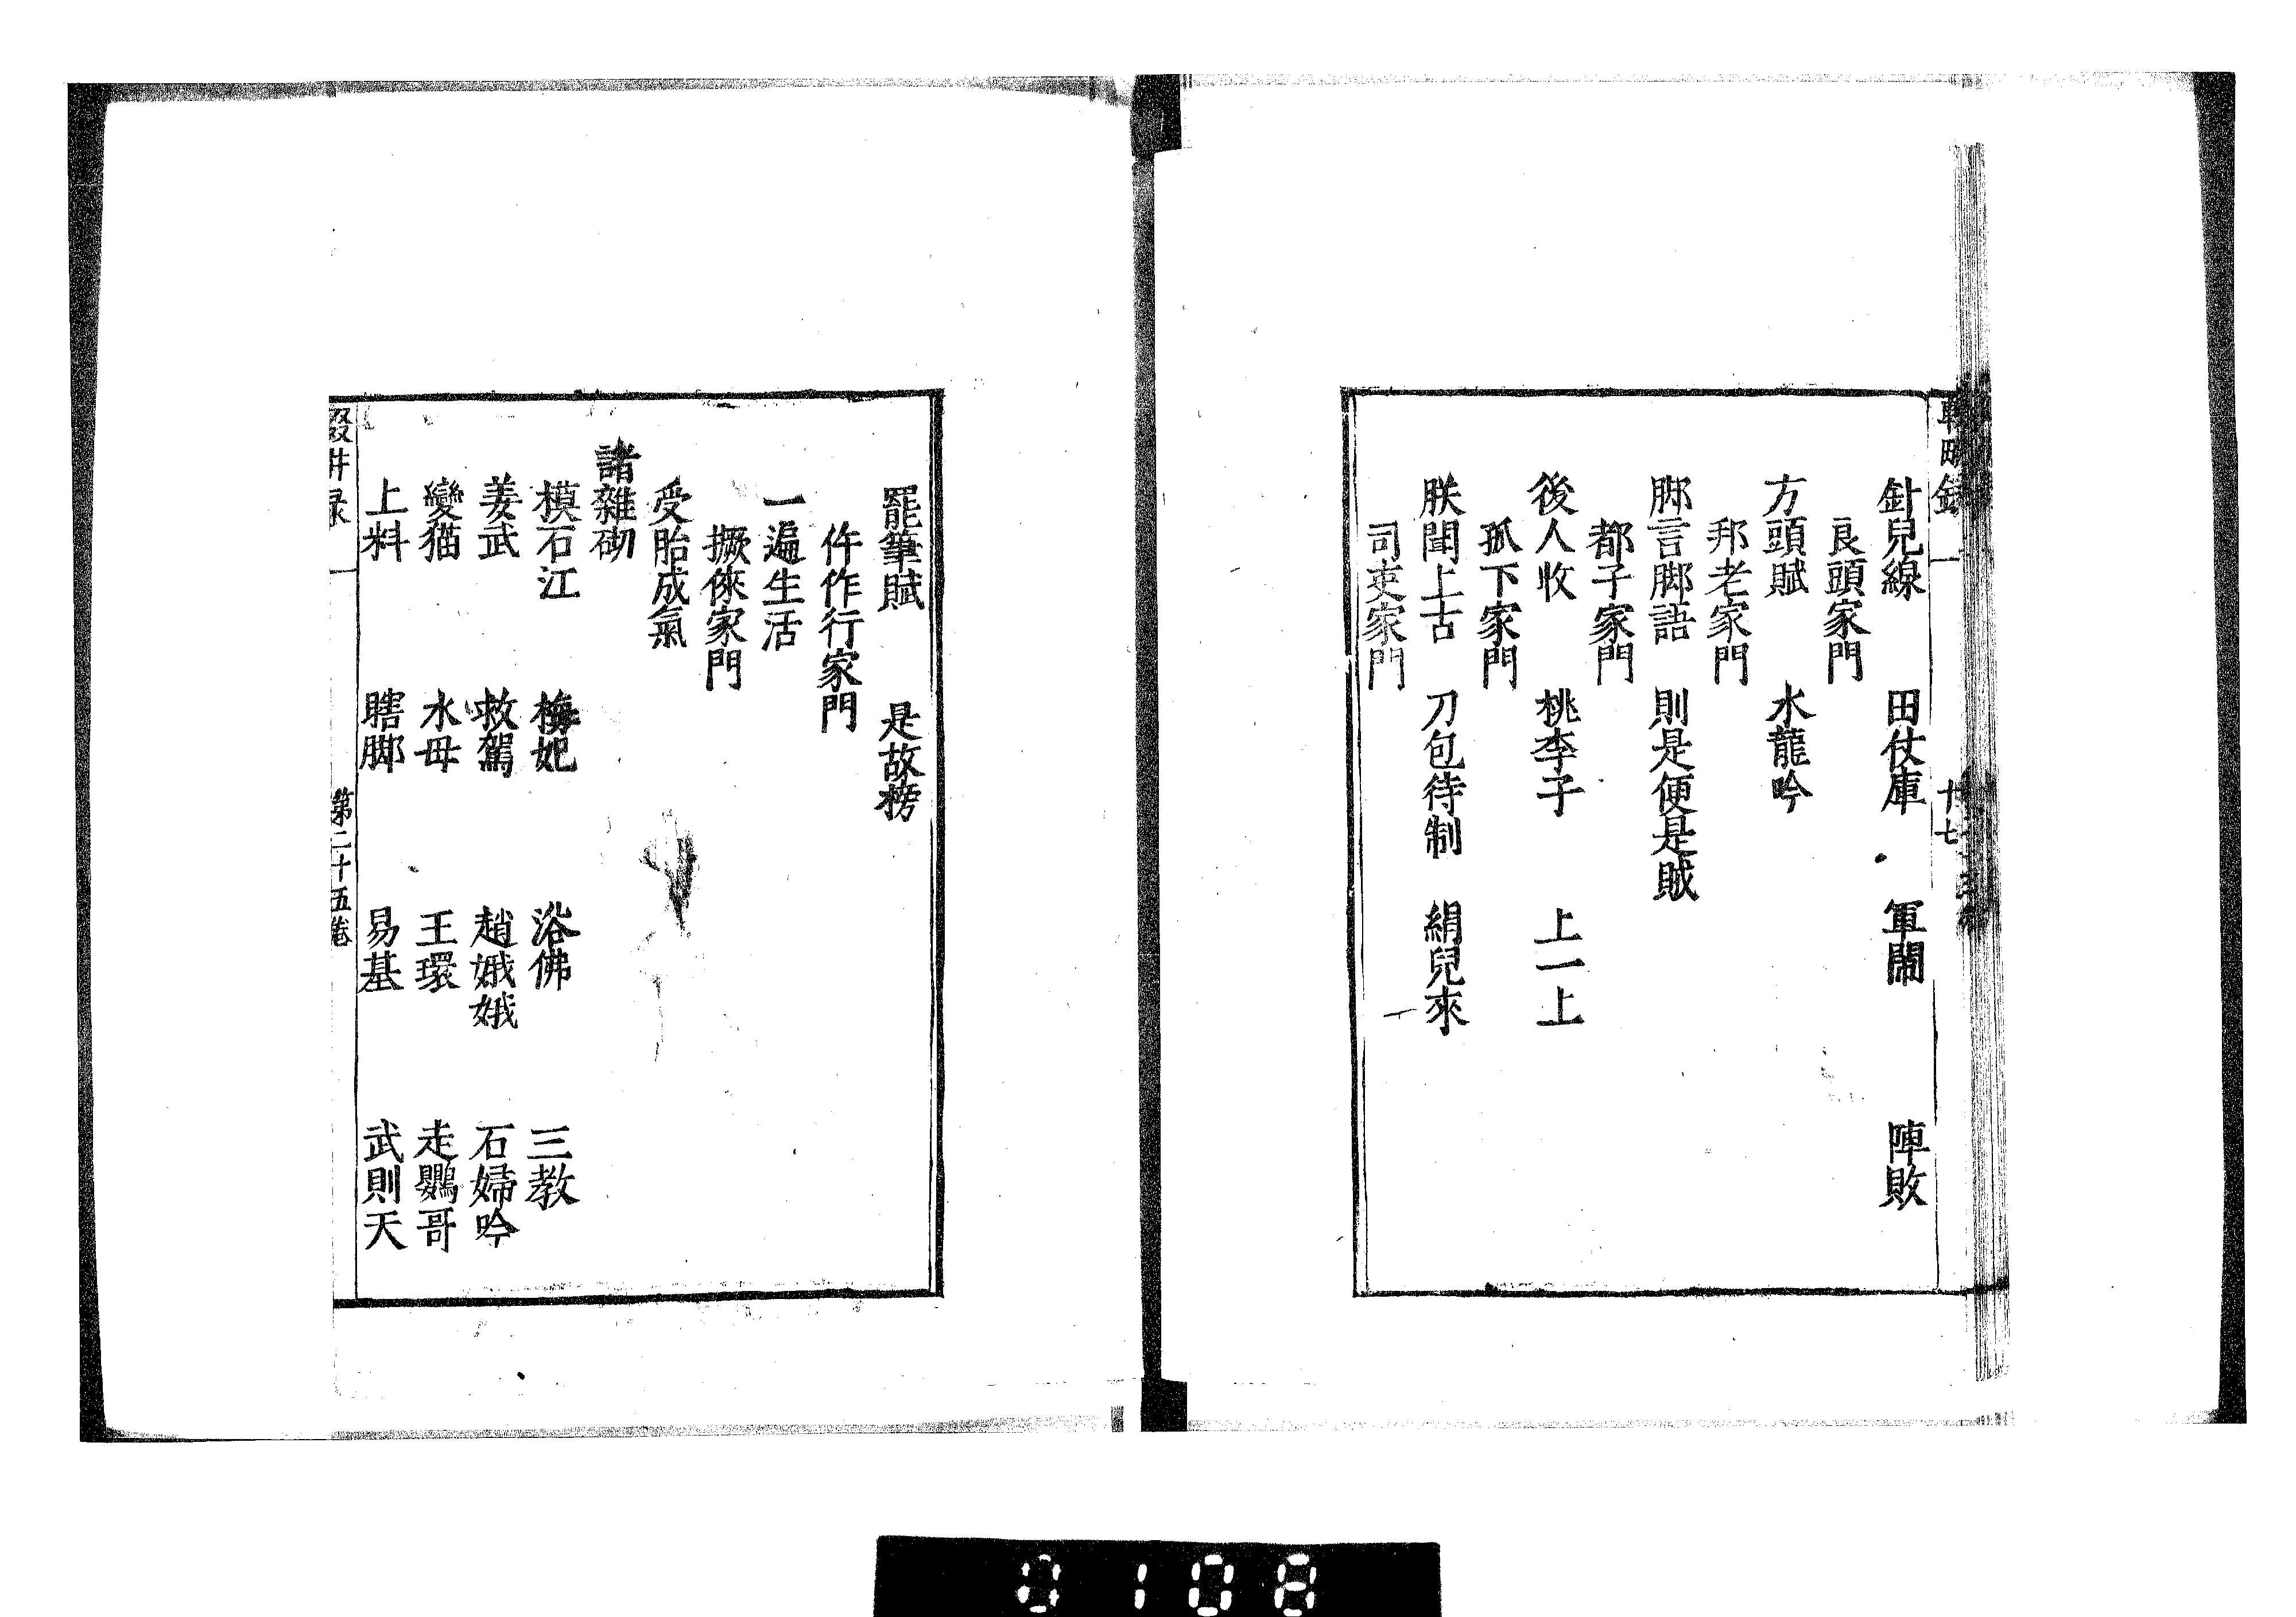 針兒線　田仗庫　軍閙　陣敗
良頭家門
方頭賦　水龍吟
邦老家門
脚言脚語　則是便是賊
都子家門
後人收　桃李子　上一上
孤下家門
朕聞上古　刀包待制　絹兒來
司吏家門
罷筆賦　是故榜
仵作行家門
一遍生活
撅倈家門
受胎成氣
諸雜砌
模石江　梅妃　浴佛　三教
姜武　救駕　趙娥娥　石婦吟
變猫　水母　王環　走鸚哥
上料　瞎脚　易基　武則天
第二十五卷
0108